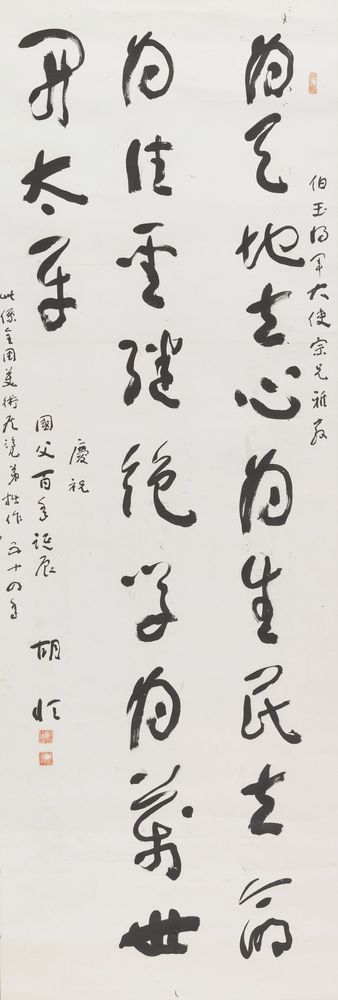 伯玉將軍大使宗兄雅教
為天地立心為生民立命
為往聖繼絕學為萬世
開太平
慶祝
國父百年誕辰 胡恆
此係全國美術展覽弟拙作 五十四年